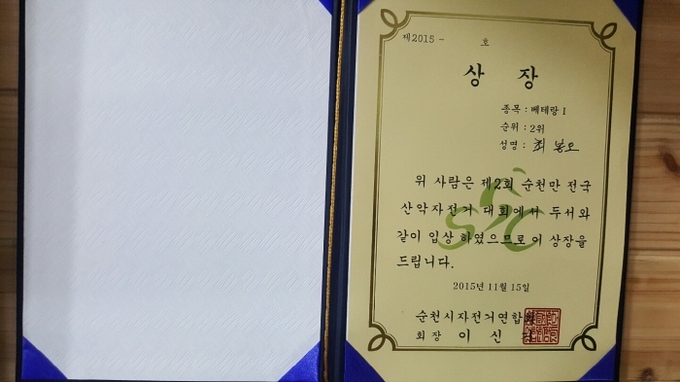 제2015 - 호
상 장
종목 : 베테랑 1
순위 : 2위
성명 : 최 봉오
위 사람은 제2회 순천만 전국
산악자전거 대회에서 두서와
같이 입상 하였으므로 이 상장을
드립니다.
2015년 11월 15일
순천시자전거연합회
회장 이 신